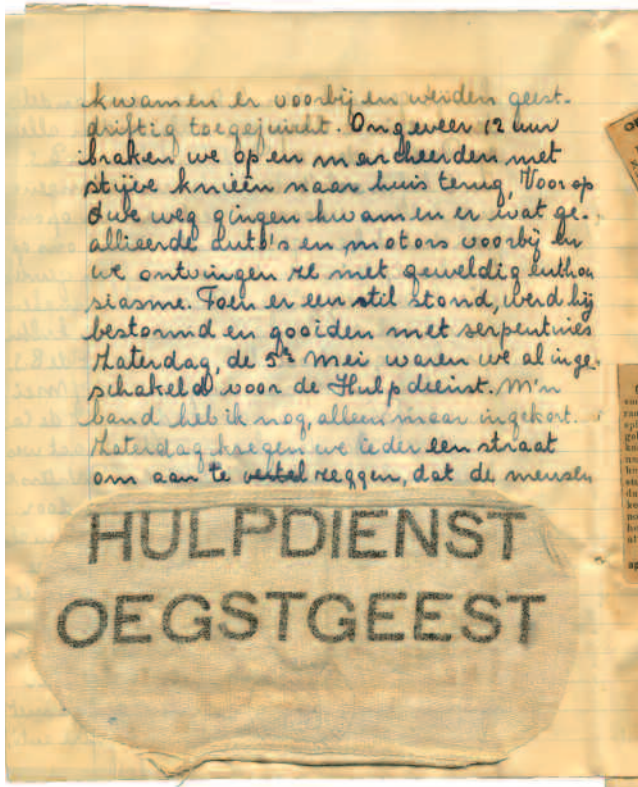 kwamen er voorbij en werden geest-
driftig toegejuicht. Ongeveer 12 uur
braken we op en marcheerden met
stijve knieën naar huis terug, Voorop
d we weg gingen kwamen er wat ge-
allieerde auto's en motors voorbij en
we ontvingen ze met geweldig enthou
siasme. Toen er een stil stond, werd hij
bestormd en gooiden met serpentines
Zaterdag, de 5e Mei waren we al inge-
schakeld voor de Hulpdienst. M'n
band heb ik nog, alleen maar ingekort.
Zaterdag kregen we ieder een straat
om aan te zeggen, dat de mensen
HULPDIENST
OEGSTGEEST